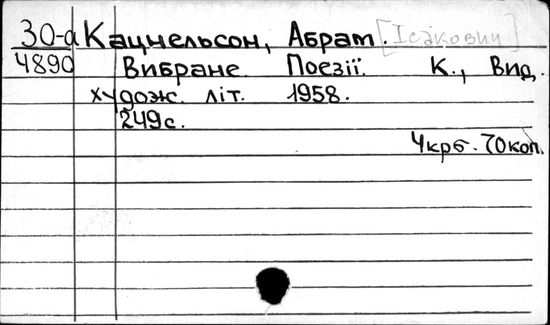 30-а Кацнельсон, Абрам. [Ісакович]
4890 Вибране. Поезії. К., Вид.
худож. літ. 1958.
249с.
4крб. 70коп.